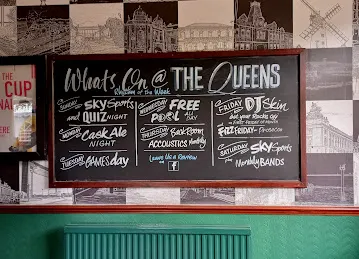 THE
CUP
What's On @ THE QUEENS
Rhythm of the Week
SUNDAY SKY Sports
and QUIZ NIGHT
MONDAY Cask Ale
NIGHT
TUESDAY GAMES day
WEDNESDAY FREE
POOL ALL DAY
THURSDAY Back Room
ACCOUSTICS Monthly
LEAVE US A REVIEW
f
FRIDAY DJ Skin
Get your Rocks off
on FIRST FRIDAY OF MONTH
FIZZ FRIDAY - PROSECCO
SATURDAY SKY Sports
Monthly BANDS